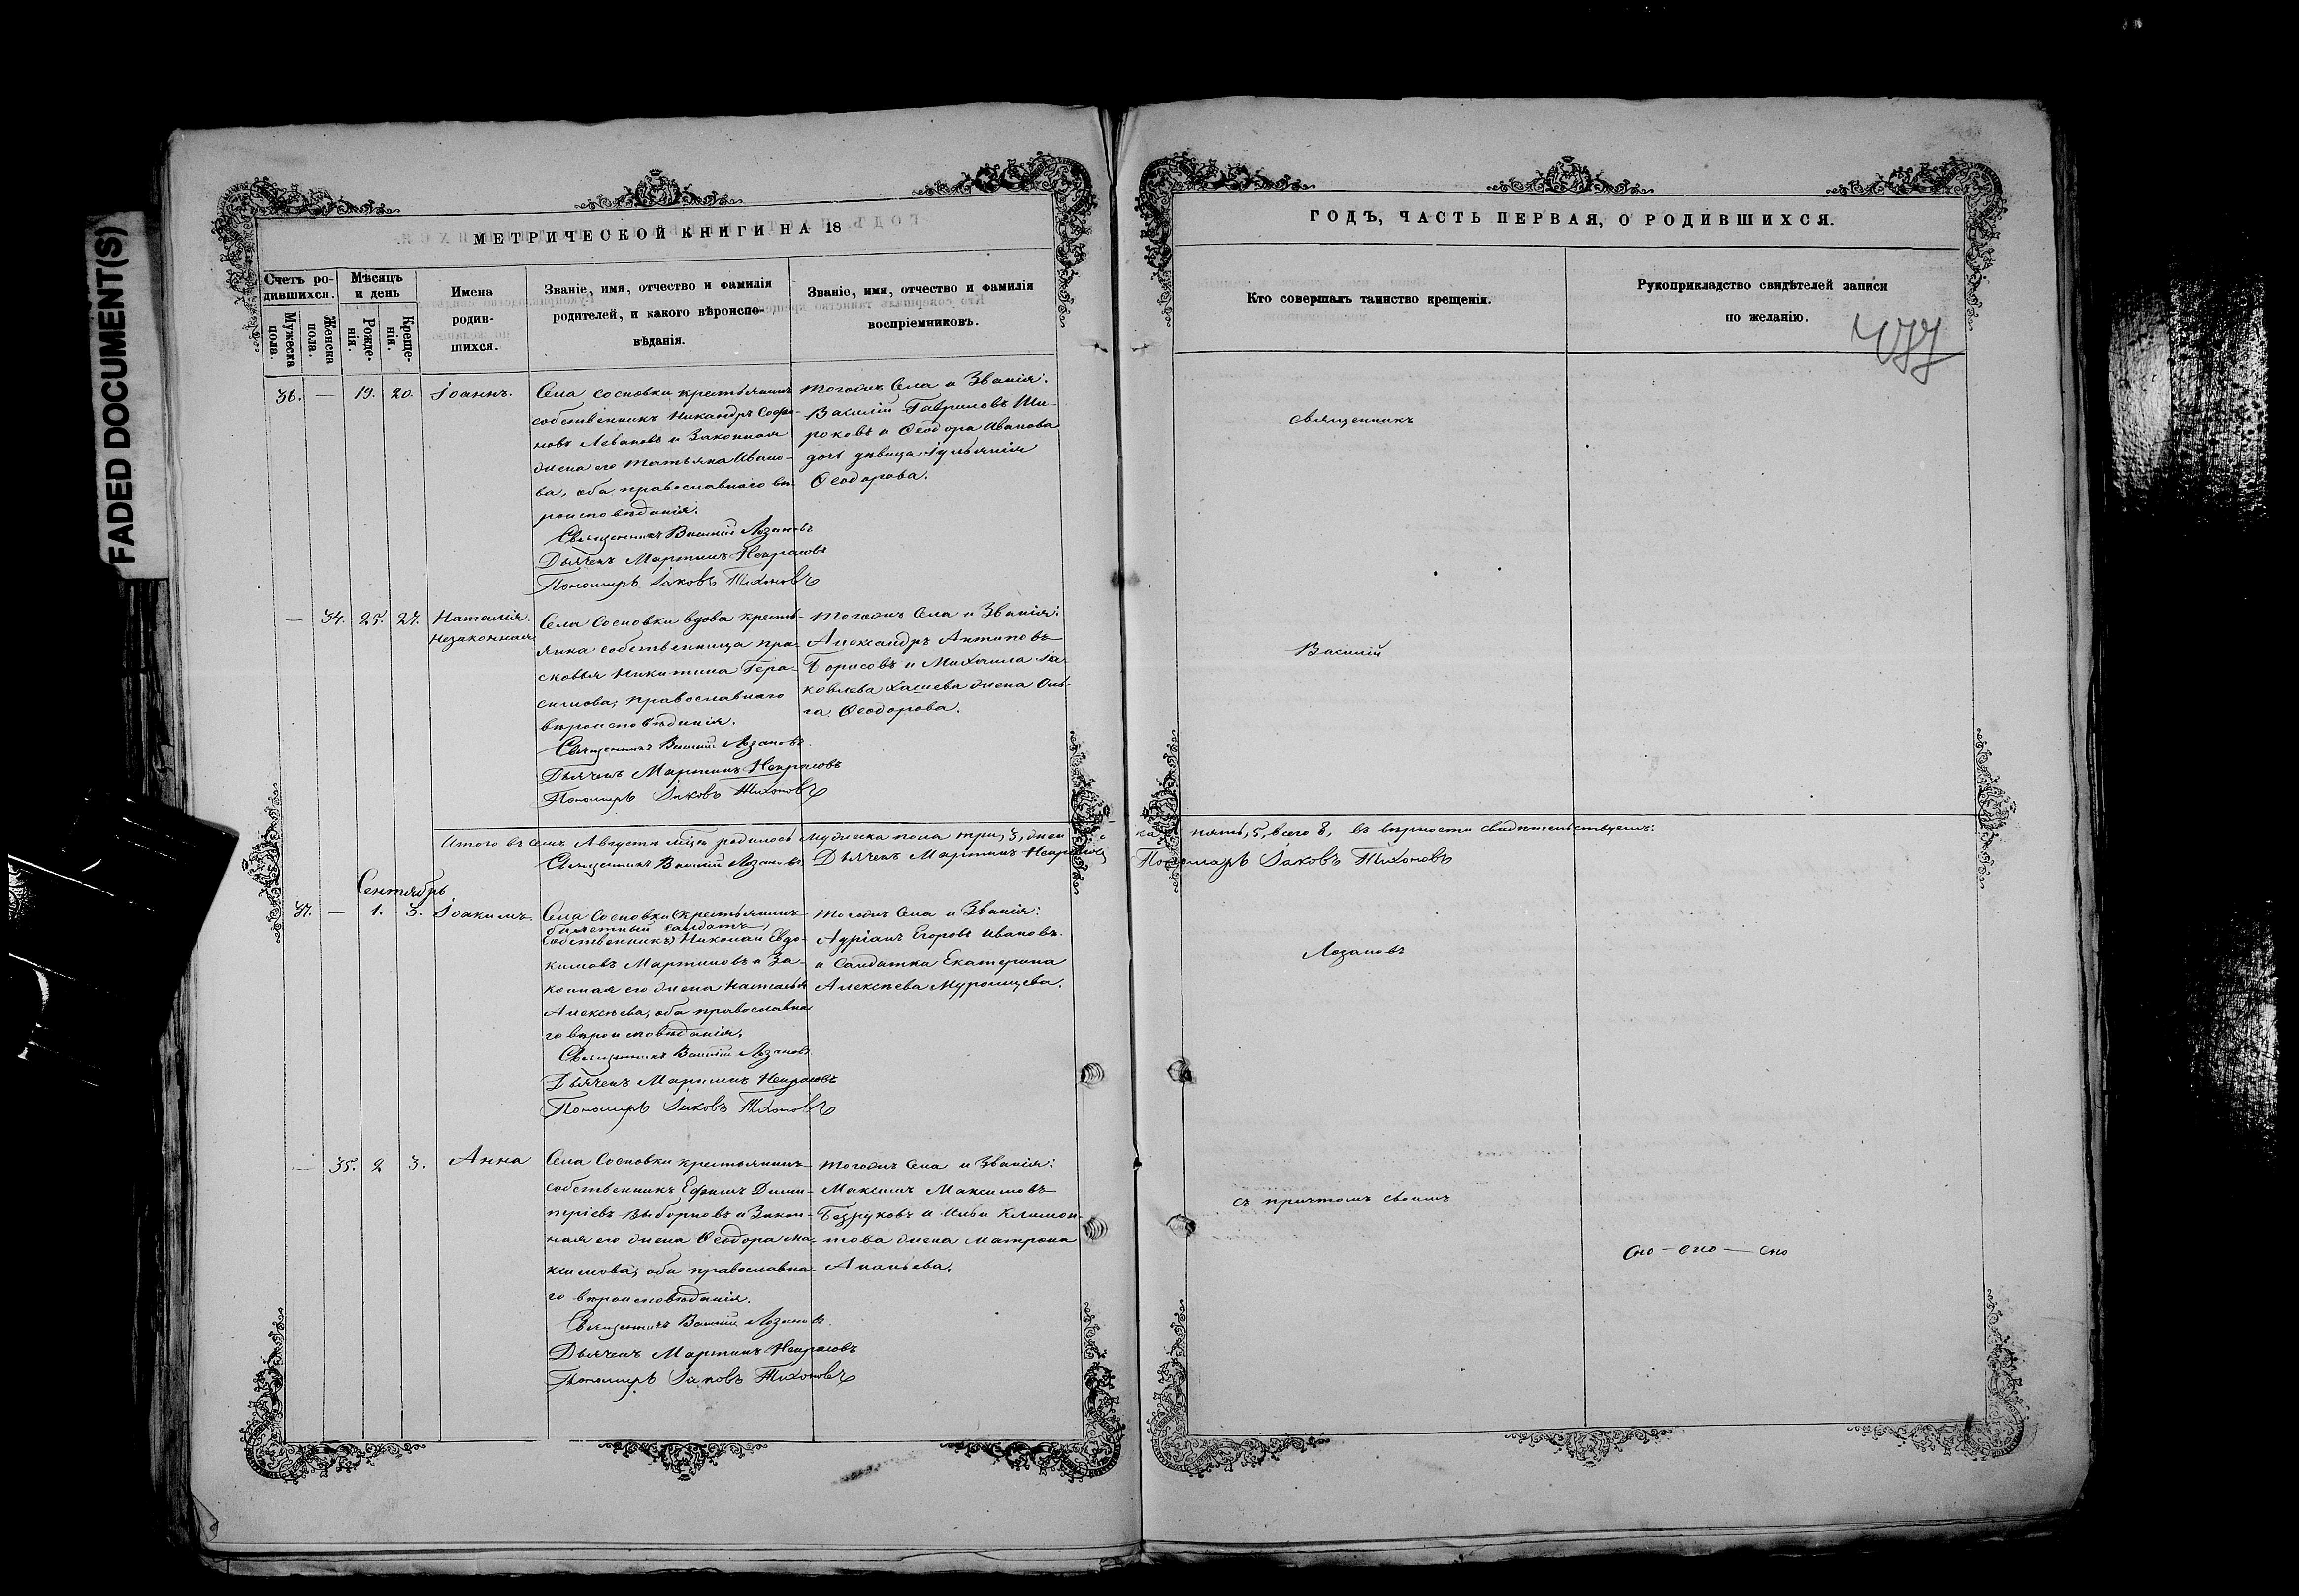 FADED DOCUMENT(S)
МЕТРИЧЕСКОЙ КНИГИ НА 18
Счетъ ро-
дившихся.
Мужеска
пола.
Женска
пола.
Мѣсяцъ
и день
Рожде-
нія.
Креще-
нія.
Имена
родив-
шихся.
Званіе, имя, отчество и фамилія
родителей, и какого вѣроиспо-
вѣданія.
Званіе, имя, отчество и фамилія
воспріемниковъ.
36. — 19. 20. Іоаннъ.
Села Сосновки крестьянинъ
собственникъ Никандръ Софо-
новъ Левановъ и Законная
жена его Татьяна Ивано-
ва, оба православнаго вѣ-
роисповѣданія.
Священникъ Василій Лозановъ
Дьячекъ Мартинъ Некрасовъ
Пономарь Іаковъ Тихоновъ
Тогожъ Села и Званія:
Василій Гавриловъ Ши-
роковъ и Ѳеодора Иванова
дочь дѣвица Іульянія
Ѳеодорова.
— 34. 25. 27. Наталія.
Незаконная
Села Сосновки вдова кресть-
янка собственница Пра-
сковья Никитина Гера-
симова, православнаго
вѣроисповѣданія.
Священникъ Василій Лозановъ.
Дьячекъ Мартинъ Некрасовъ
Пономарь Іаковъ Тихоновъ
Тогожъ Села и Званія:
Александръ Антиповъ
Борисовъ и Михаила Іа-
ковлева жена Оль-
га Ѳеодорова.
Итого въ семъ Августѣ м-цѣ родилось Мужеска пола три, 3, жен
Священникъ Василій Лозановъ Дьячекъ Мартинъ Некрасовъ
Сентябрь
37. — 1. 3. Іоакимъ.
Села Сосновки (крестьянинъ
билетный солдатъ,
собственникъ) Николай Евдо-
кимовъ Мартиновъ и За-
конная его жена Наталья
Алексѣева, оба православна-
го вѣроисповѣданія.
Священникъ Василій Лозановъ.
Дьячекъ Мартинъ Некрасовъ
Пономарь Іаковъ Тихоновъ
Тогожъ Села и Званія:
Адріанъ Егоровъ Ивановъ
и Салдатка Екатерина
Алексѣева Муромцева.
— 35. 2 3. Анна
Села Сосновки крестьянинъ
собственникъ Ефимъ Дими-
тріевъ Выборновъ и Закон-
ная его жена Ѳеодора Ма-
ксимова, оба православна-
го вѣроисповѣданія.
Священникъ Василій Лозановъ.
Дьячекъ Мартинъ Некрасовъ
Пономарь Іаковъ Тихоновъ
Тогожъ Села и Званія:
Максимъ Максимовъ
Безруковъ и Ильи Климон-
това жена Матрона
Ананьева.
ГОДЪ, ЧАСТЬ ПЕРВАЯ, О РОДИВШИХСЯ.
Кто совершалъ таинство крещенія.
Рукоприкладство свидѣтелей записи
по желанію.
священникъ
Василій
ка пять, 5, всего 8, въ вѣрности свидѣтельствуемъ:
Пономарь Іаковъ Тихоновъ
Лозановъ
съ причтомъ своимъ